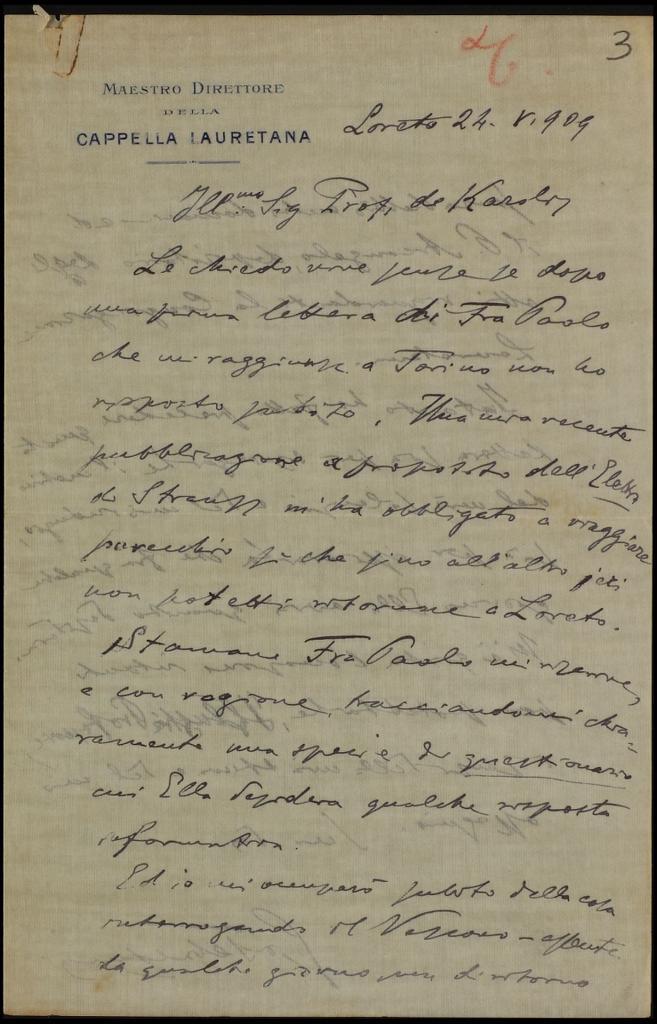 3
MAESTRO DIRETTORE
DELLA
CAPPELLA LAURETANA
Loreto 24. V. 909
Ill.mo Sig Prof. de Karoly
Le chiedo vive scuse se dopo
una prima lettera di Fra Paolo
che mi raggiunse a Torino non ho
risposto subito. Una mia recente
pubblicazione a proposito dell'Elektra
di Strauss mi ha obbligato a viaggiare
parecchio sì che sino all'altro jeri
non potetti ritornare a Loreto.
Stamane Fra Paolo mi riscrive,
e con ragione, tracciandomi chia-
ramente una specie di questionario
cui Ella desidera qualche risposta
informativa.
Ed io mi occuperò subito della cosa
interrogando il Vescovo - assente
da qualche giorno ma di ritorno